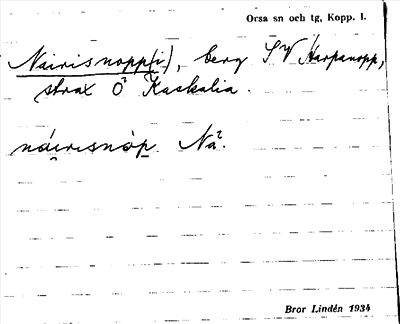 Orsa sn och tg, Kopp. l.
Nairisnopp(i), berg SV Harpanopp,
strax Ö Kaskalia.
náirisnòp. Nå.
Bror Lindén 1934